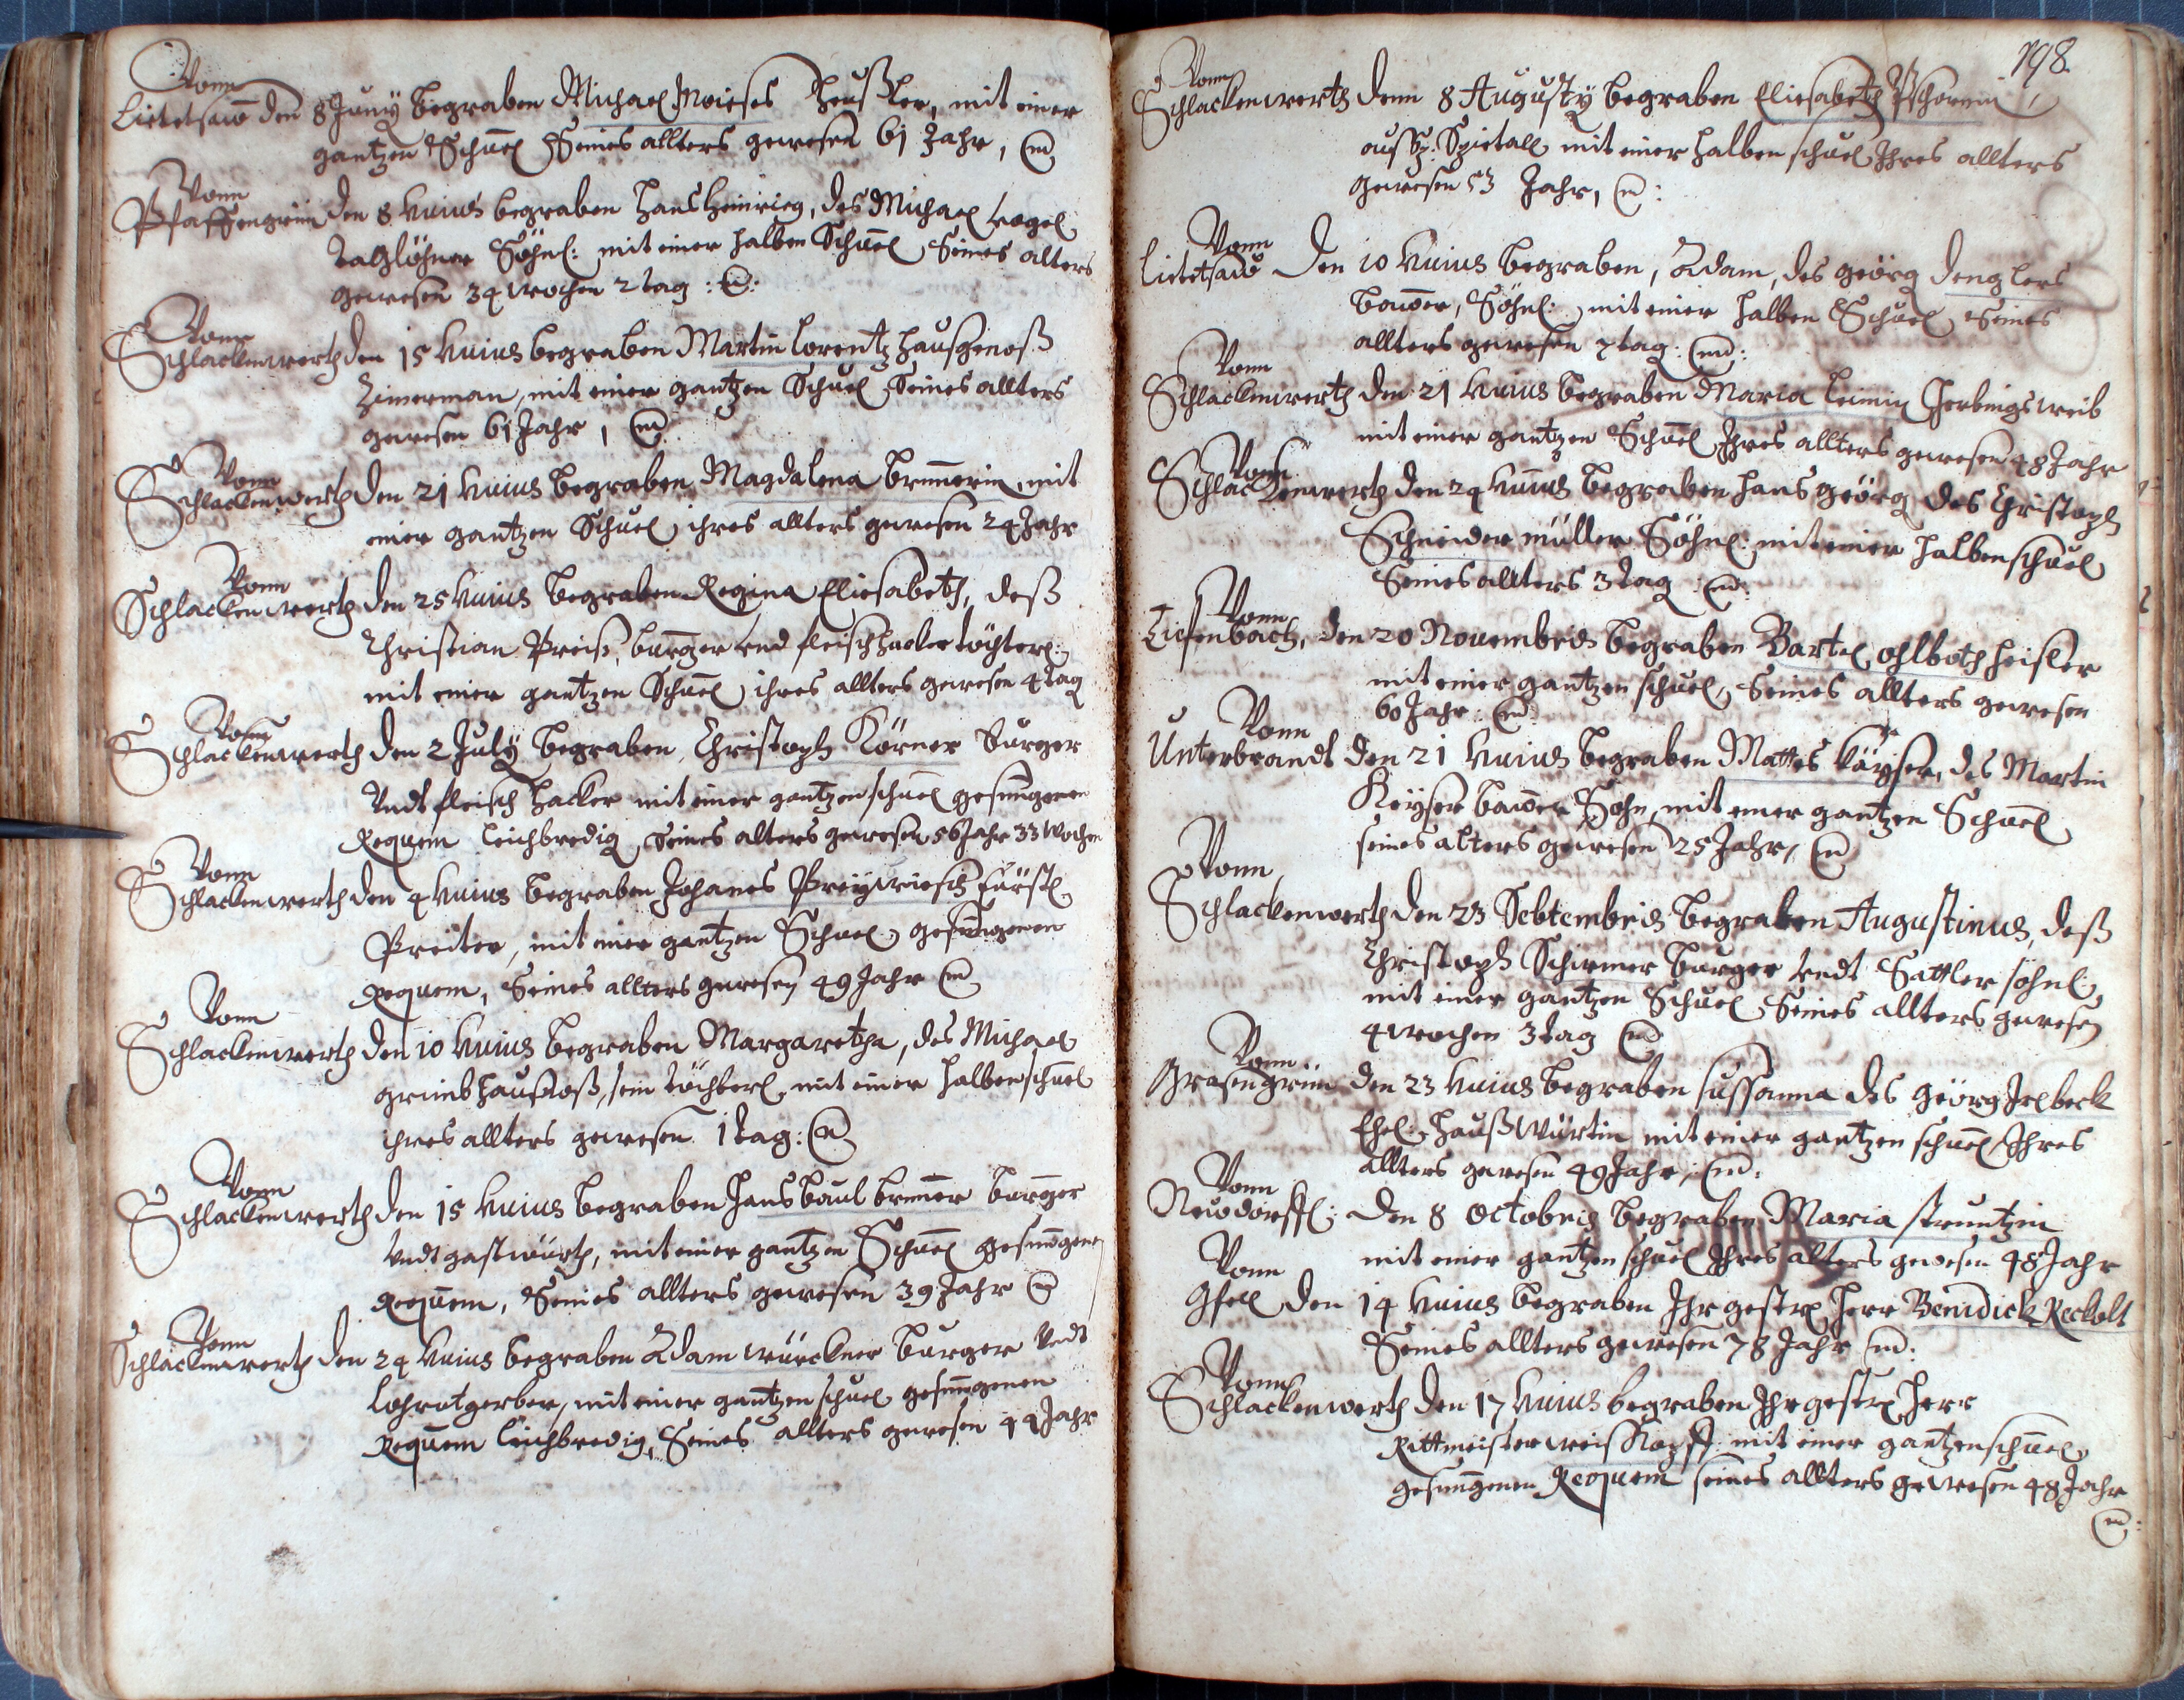 Vonn
Lietetsaw den 8 Juny begraben Michael Moieses Heußler, mit einer
gantzen Schuel Seines allters gewesen 61 Jahr,
Vonn
Pfaffengrün den 8 huius begraben Hans Heinrieg, des Michael Vogel
Taglöhner Söhnl: mit einer halben Schuel Seines alters
gewesen 34 wochen 2 tag
Vonn
Schlackenwerth den 15 huius begraben Martin Lorentz haußgenoß
Zimerman, mit einer gantzen Schuel Seines allters
gewesen 61 Jahr,
Vonn
Schlackenwerth den 21 huius begraben Magdalena Brunnerin, mit
einer gantzen Schuel ihres allters gewesen 24 Jahr
Vonn
Schlackenwerth den 25 huius begraben Regina Eliesabeth, deß
Christian Preiß, burger vnd fleischhacker töchterl:
mit einer gantzen Schuel ihres allters gewesen 4 tag
Vonn
Schlackenwerth den 2 July begraben, Christoph Körner Burger
Vndt fleisch hacker mit einer gantzen schuel gesungenen
Requem leichbredig, Seines alters gewesen 56 Jahr 33 Wochen
Vonn
Schlackenwerth den 4 huius begraben Johanes Preywiesch Fürstl
Preiter, mit einer gantzen Schuel gesungenen
Requem, Seines allters gewesen 49 Jahr
Vonn
Schlackenwerth den 10 huius begraben Margaretha, des Michael
haußgnoß, sein töchterl, mit einer halben schuel
ihres allters gewesen 1 tag:
Vonn
Schlackenwerth den 15 huius begraben Hans Baul Brunner burger
Vndt gastwürth, mit einer gantzen Schuel gesungenen
Requem, Seines allters gewesen 39 Jahr
Vonn
Schlackenwerth den 24 huius begraben Adam würckner burger Vndt
Lohrotgerber, mit einer gantzen schuel gesungenen
Requem leichbredig, Seines allters gewesen 44 Jahr
198.
Vonn
Schlackenwerth denn 8 Augusty begraben Eliesabeth
auß Spietall mit einer halben schuel Ihres allters
gewesen 53 Jahr,
Vonn
Lietetsaw Den 10 huius begraben, Adam, des Geörg Denglers
bawer, Söhnl: mit einer halben Schuel Seines
allters gewesen 7 tag:
Vonn
Schlackenwerth den 21 huius begraben Maria Leimin Herbingsweib
mit einer gantzen Schuel Ihres allters gewesen 48 Jahr
Vonn
Schlackenwerth den 24 huius begraben Hans Geörg des Christoph
Schneider müller Söhnl: mit einer halben schuel
Seines allters 3 tag
Vonn
Tiefenbach, den 20 Nouembris begraben Bartel ohlboth heisler
mit einer gantzen schuel, Seines allters gewesen
60 Jahr
Vonn
Unterbrandt den 21 huius begraben Mattes Käyser, des Martin
Keyser bawer Sohn, mit einer gantzen Schuel
seines alters gewesen 25 Jahr,
Vonn
Schlackenwerth den 23 Sebtembris begraben Augustinus, deß
Christoph Schirmer burger vndt Sattler söhnl:
mit einer gantzen Schuel Seines allters gewesen
4 wochen 3 tag
Vonn
Grasengrün den 23 huius begraben Sussanna des Geörg Irlbeck
Ehel: haußwürtin mit einer gantzen schuel Ihres
allters gewesen 49 Jahr,
Vonn
Newdorffl: den 8 Octobris begraben Maria struntzin
mit einer gantzen schuel Ihres alters gewesen 48 Jahr
Vonn
Gfell den 14 huius begraben Ihr gestr: Herr Benidick Reckolt
Seines allters gewesen 78 Jahr
Vonn
Schlackenwerth den 17 huius begraben Ihr gestr: Herr
Rittmeister weiskopff mit einer gantzen schuel
gesungenen Requem seines allters gewesen 48 Jahr